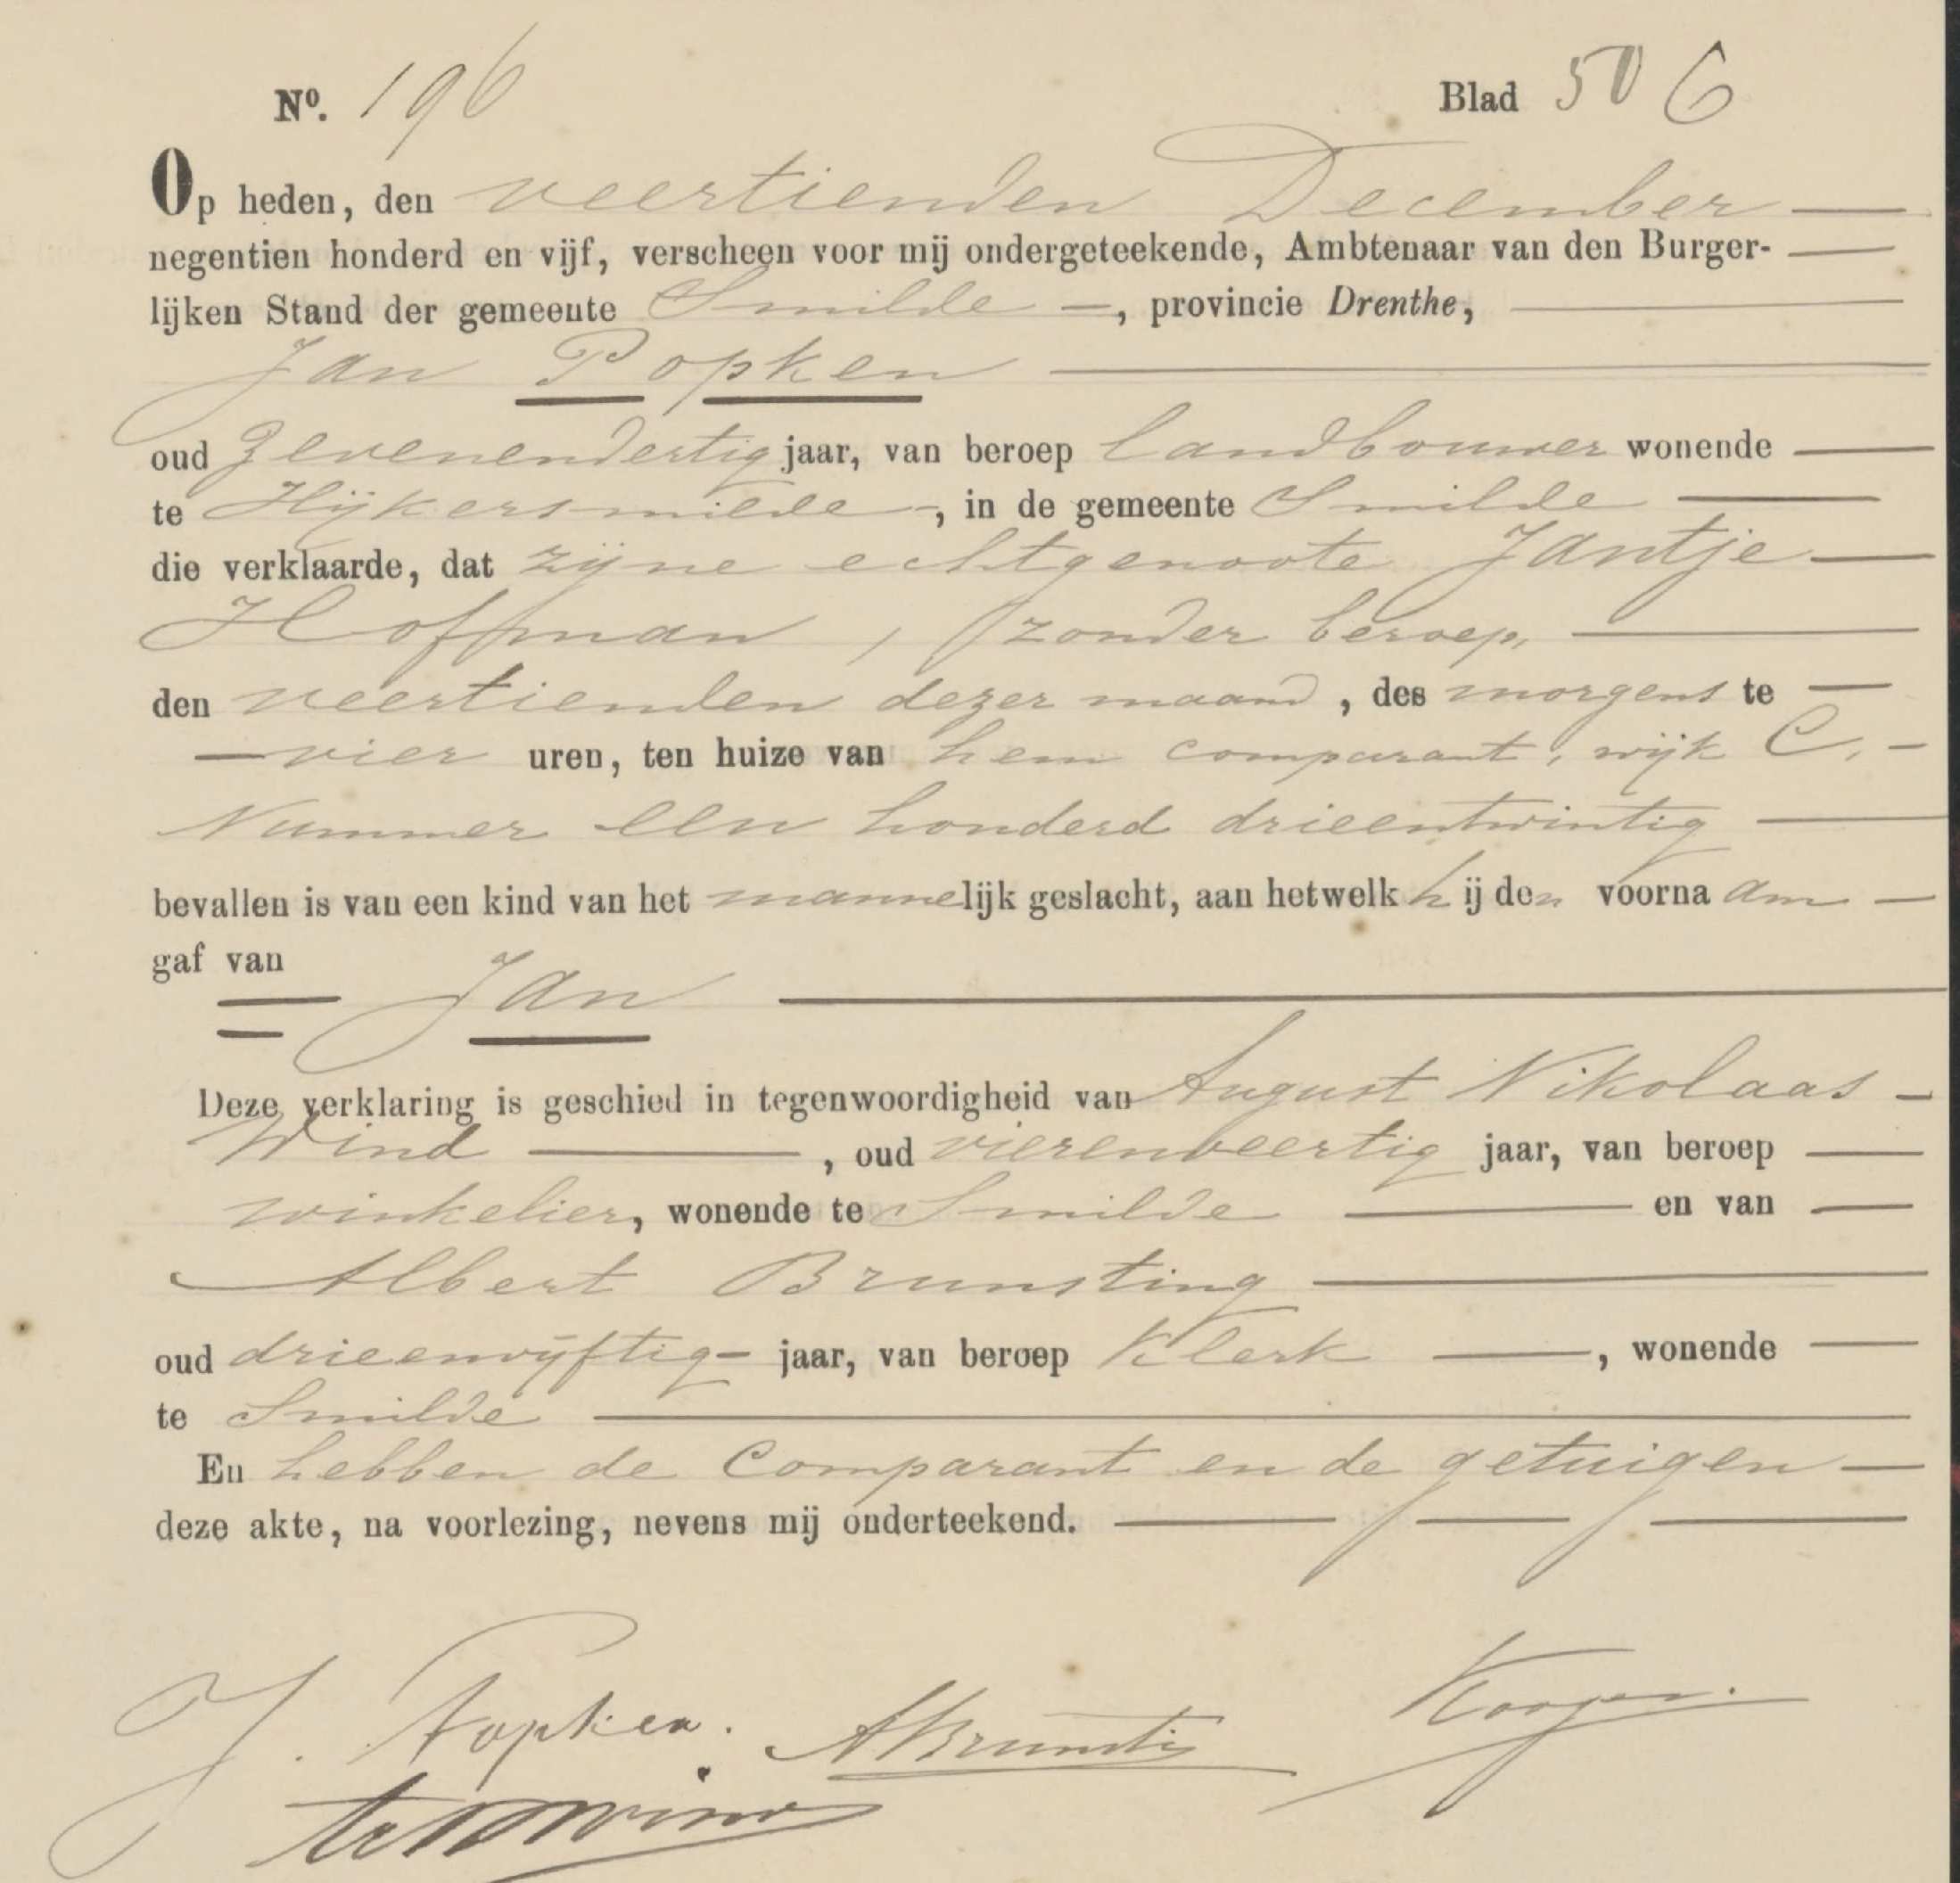 Nº. 196 Blad 506
Op heden, den veertienden December
negentien honderd en vijf, verscheen voor mij ondergeteekende, Ambtenaar van den Burger-
lijken Stand der gemeente Smilde, provincie Drenthe,
Jan Popken
oud zevenendertig jaar, van beroep landbouwer wonende
te Hijkersmilde, in de gemeente Smilde
die verklaarde, dat zijne echtgenoote Jantje
Hoffman, zonder beroep,
den veertienden dezer maand, des morgens te
vier uren, ten huize van hem comparant, wijk C,
Nummer een honderd drieentwintig
bevallen is van een kind van het mannelijk geslacht, aan hetwelk hij den voornaam
gaf van
Jan
Deze verklaring is geschied in tegenwoordigheid van August Nikolaas
Wind, oud vierenveertig jaar, van beroep
winkelier, wonende te Smilde en van
Albert Brunsting
oud drieenvijftig jaar, van beroep Klerk, wonende
te Smilde
En hebben de Comparant en de getuigen
deze akte, na voorlezing, nevens mij onderteekend.
J. Popken. ABrunsting